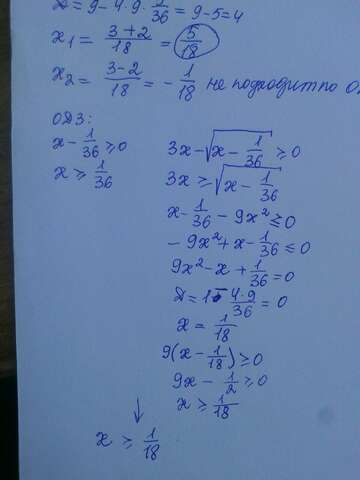 D = 9 - 4·9·5/36 = 9 - 5 = 4
x₁ = (3+2)/18 = 5/18
x₂ = (3-2)/18 = -1/18 не подходит по О
ОДЗ:
x - 1/36 ≥ 0
x ≥ 1/36
3x - √(x - 1/36) ≥ 0
3x ≥ √(x - 1/36)
x - 1/36 - 9x² ≤ 0
-9x² + x - 1/36 ≤ 0
9x² - x + 1/36 = 0
D = 1 - 4·9/36 = 0
x = 1/18
9(x - 1/18) ≥ 0
9x - 1/2 ≥ 0
x ≥ 1/18
↓
x ≥ 1/18